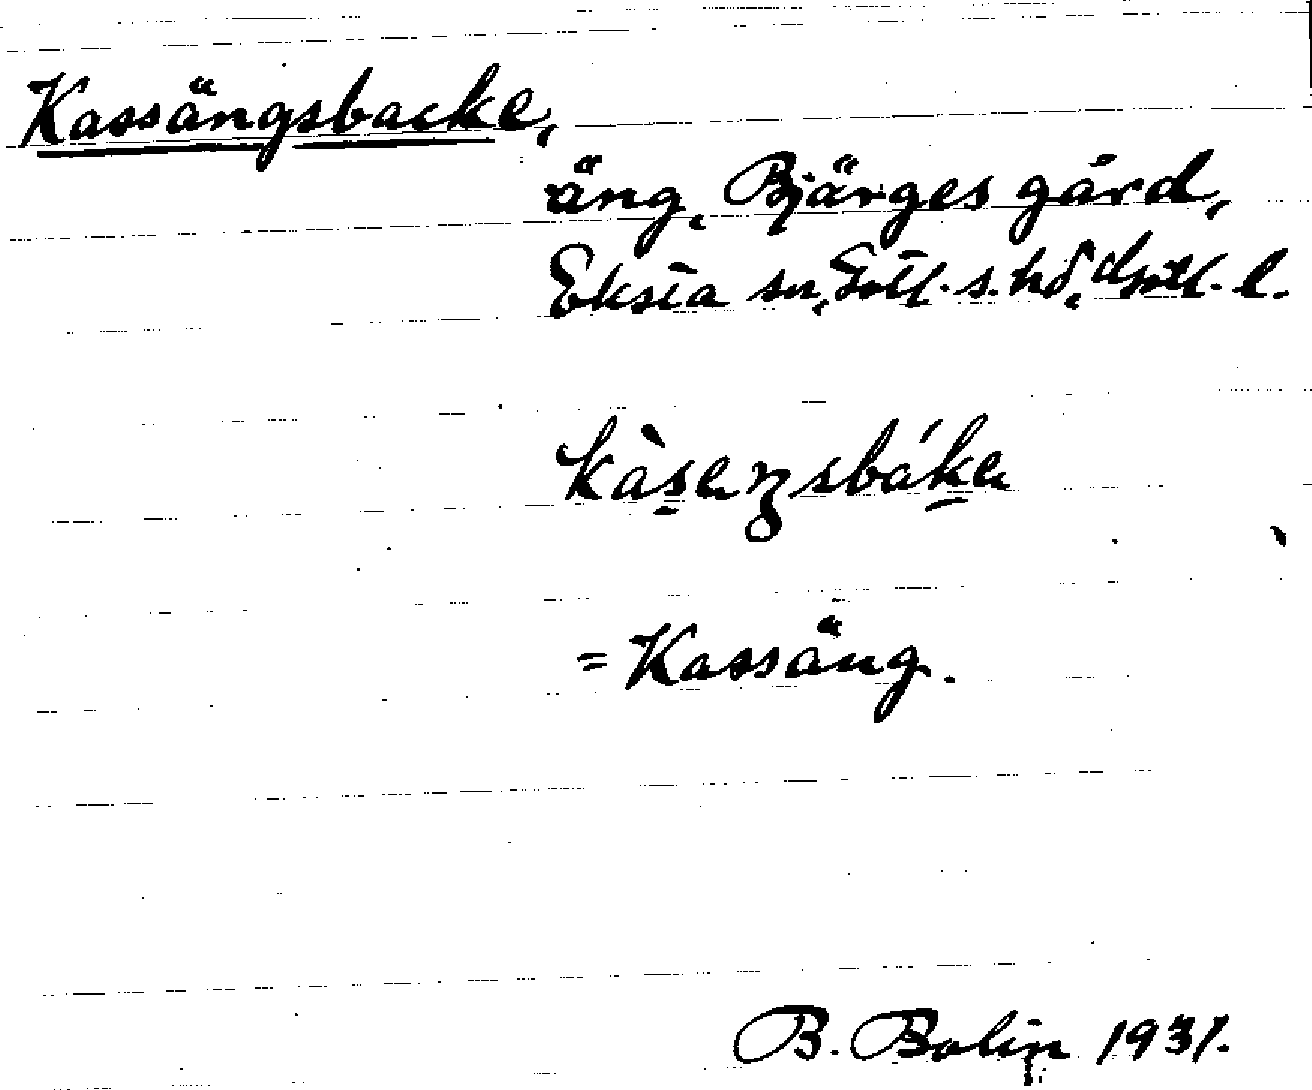 Kassängsbacke,
äng, Bjärges gård,
Eksta sn, Gotl. s. hd, Gotl. l.
= Kassäng.
B. Bolin 1931.